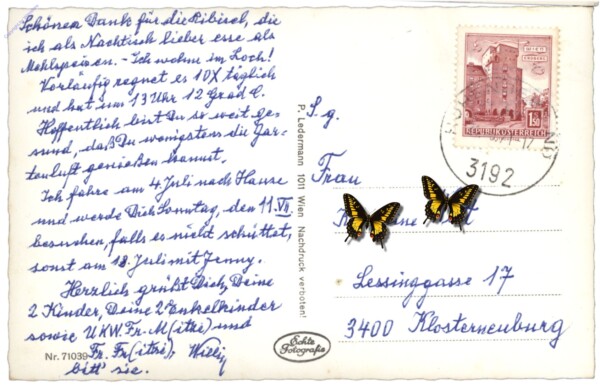 Schönen Dank für die Ribisel, die
ich als Nachtisch lieber esse als
Mehlspeisen. - Ich wohne im Loch!
Vorläufig regnet es 10X täglich
und hat um 13 Uhr 12 Grad C.
Hoffentlich bist Du so weit ge-
sund, daß Du wenigstens die Gar-
tenluft genießen kannst.
Ich fahre am 4. Juli nach Hause
und werde Dich Sonntag, den 11. VII.
besuchen, falls es nicht schüttet,
sonst am 18. Juli mit Jenny.
Herzlich grüßt Dich, Deine
2 Kinder, Deine 2 Enkelkinder
sowie U.K.W. Fr. M(itzi) und
Fr. Fr(itzi), Willy
bitt' sie.
Nr. 71039
P. Ledermann 1011 Wien Nachdruck verboten!
Echte
Fotografie
WIEN
ERDBERG
1.50
REPUBLIK ÖSTERREICH
3192
S.g.
Frau
Lessinggasse 17
3400 Klosterneuburg